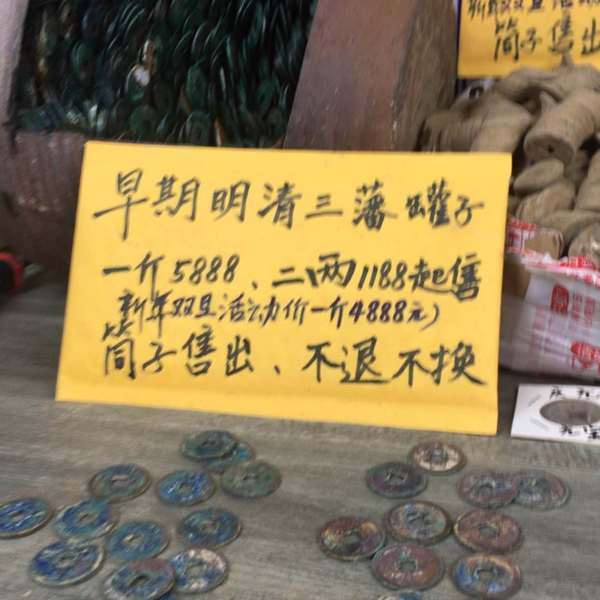 筒子售出
早期明清三藩罐子
一斤5888、二两1188起售
新年双旦活动价一斤4888元)
筒子售出、不退不换